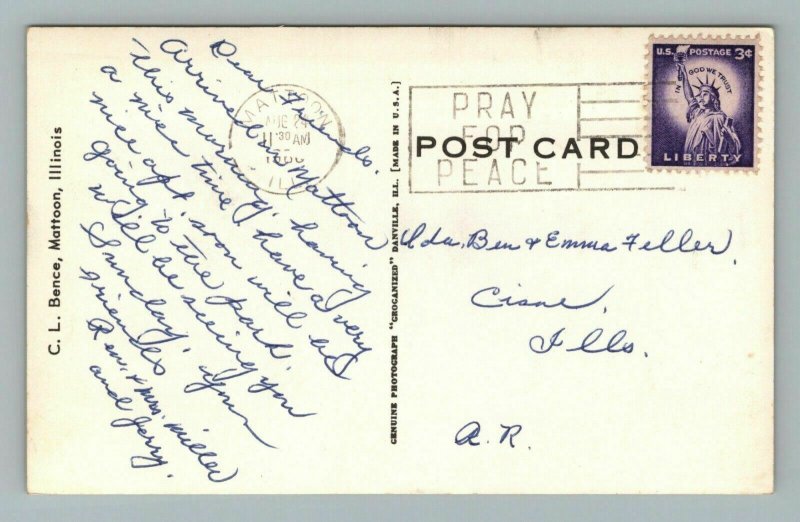 Dear Friends.
Arrived in Mattoon
this morning, having
a nice time, have a very
nice apt, soon will be
going to the park.
will be seeing you
Sunday, your
friends
Rev. & Mrs. Miller
and Jerry.
C. L. Bence, Mattoon, Illinois
MATTOON
AUG 24
11 30 AM
ILL
GENUINE PHOTOGRAPH "GROGANIZED" DANVILLE, ILL. [MADE IN U.S.A.]
PRAY
FOR
PEACE
POST CARD
U.S. POSTAGE 3¢
IN GOD WE TRUST
LIBERTY
Ida, Ben & Emma Feller.
Cisne,
Ills.
A. R.